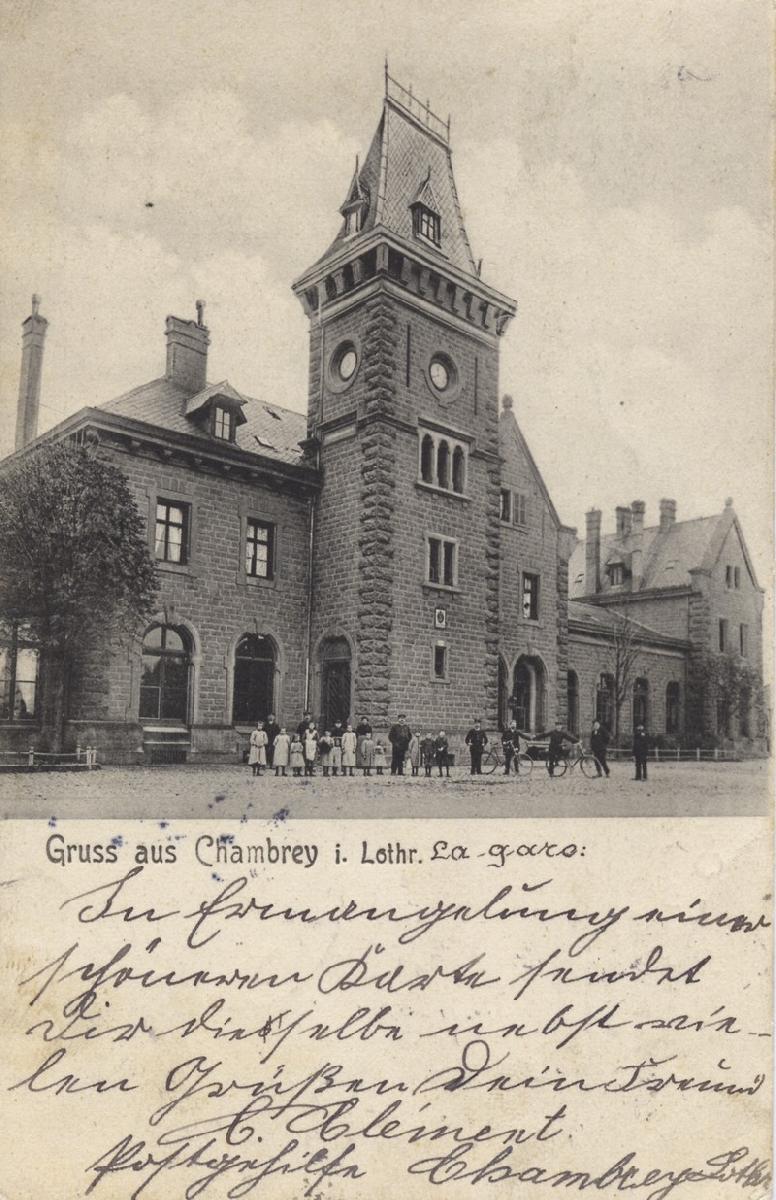 Gruss aus Chambrey i. Lothr. La gare:
In Ermangelung einer
schöneren Karte sendet
Dir dieselbe nebst vie-
len Grüßen Dein Freund
C. Clément.
Postgehilfe Chambrey Lothr